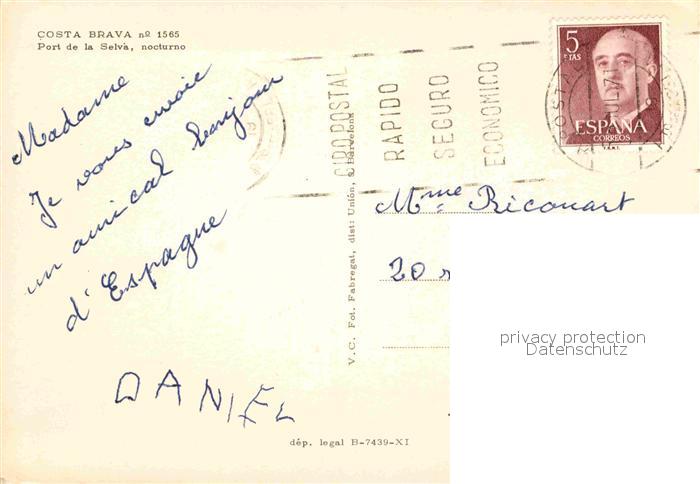 COSTA BRAVA nº 1565
Port de la Selva, nocturno
Madame
Je vous envoie
un amical bonjour
d'Espagne
DANIEL
dép. legal B-7439-XI
V.C. Fot. Fabregat, dist: Unión, Barcelona
GIRO POSTAL
RAPIDO
SEGURO
ECONOMICO
5
PTAS
ESPAÑA
CORREOS
Mme Ricouart
20
privacy protection
Datenschutz